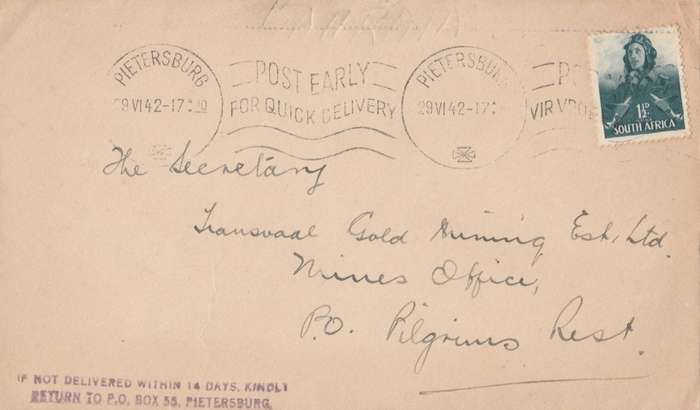 PIETERSBURG
29 VI 42-17
POST EARLY
FOR QUICK DELIVERY
PIETERSBURG
29 VI 42-17
VIR
1½D
SOUTH AFRICA
The Secretary
Transvaal Gold Mining Est, Ltd.
Mines Office,
P.O. Pilgrims Rest.
IF NOT DELIVERED WITHIN 14 DAYS, KINDLY
RETURN TO P.O. BOX 55, PIETERSBURG